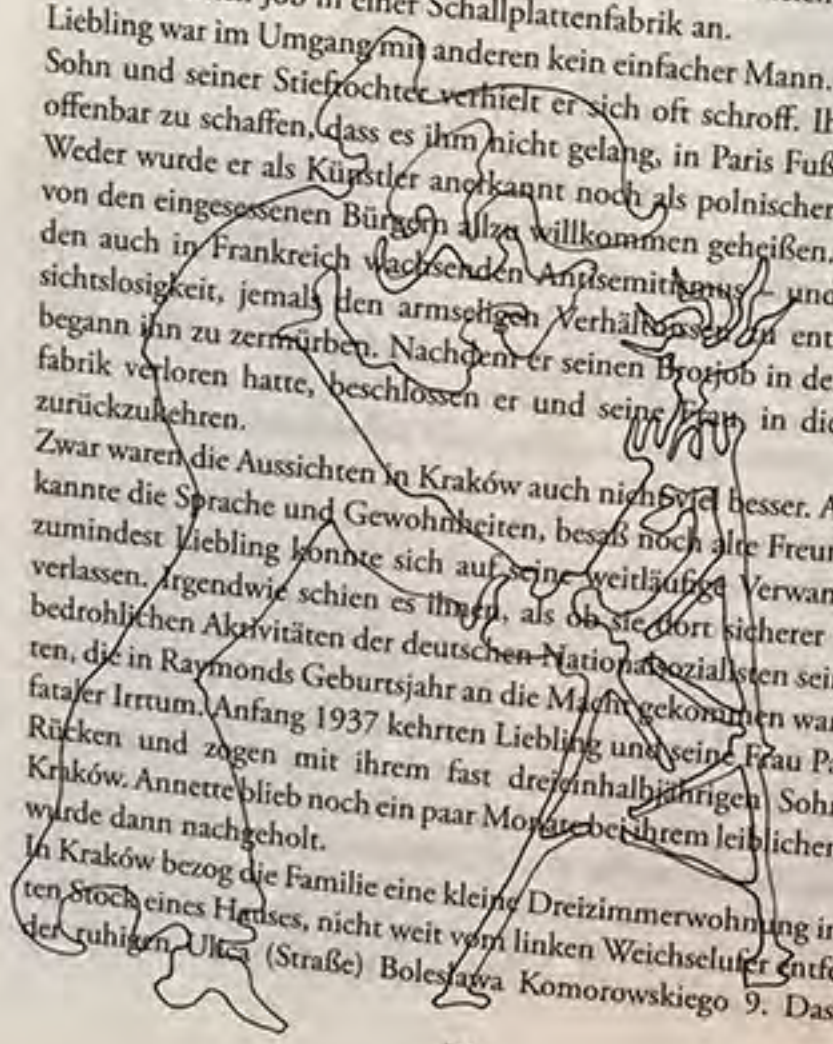 Job in einer Schallplattenfabrik an.
Liebling war im Umgang mit anderen kein einfacher Mann.
Sohn und seiner Stieftochter verhielt er sich oft schroff. Ih
offenbar zu schaffen, dass es ihm nicht gelang, in Paris Fuß
Weder wurde er als Künstler anerkannt noch als polnischer
von den eingesessenen Bürgern allzu willkommen geheißen.
den auch in Frankreich wachsenden Antisemitismus – und
sichtslosigkeit, jemals den armseligen Verhältnissen zu ent
begann ihn zu zermürben. Nachdem er seinen Brotjob in de
fabrik verloren hatte, beschlossen er und seine Frau, in die
zurückzukehren.
Zwar waren die Aussichten in Kraków auch nicht viel besser. A
kannte die Sprache und Gewohnheiten, besaß noch alte Freun
zumindest Liebling konnte sich auf seine weitläufige Verwan
verlassen. Irgendwie schien es ihnen, als ob sie dort sicherer
bedrohlichen Aktivitäten der deutschen Nationalsozialisten sei
ten, die in Raymonds Geburtsjahr an die Macht gekommen war
fataler Irrtum. Anfang 1937 kehrten Liebling und seine Frau Pa
Rücken und zogen mit ihrem fast dreieinhalbjährigen Sohn
Kraków. Annette blieb noch ein paar Monate bei ihrem leiblichen
wurde dann nachgeholt.
In Kraków bezog die Familie eine kleine Dreizimmerwohnung in
ten Stock eines Hauses, nicht weit vom linken Weichselufer entfe
der ruhigen Ulica (Straße) Bolesława Komorowskiego 9. Das